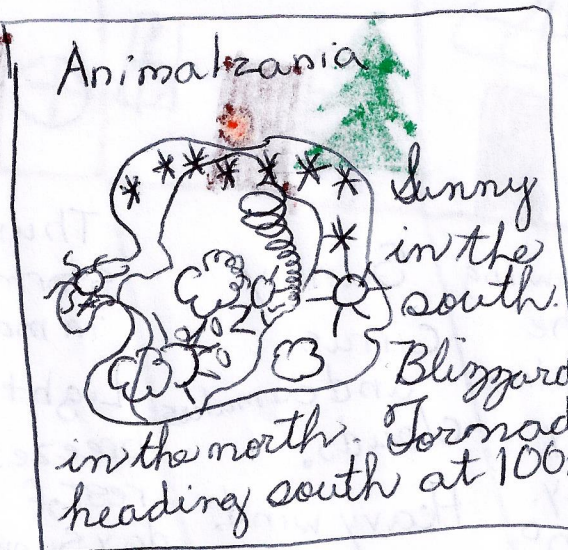 Animalzania
Sunny
in the
south.
Blizzard
in the north. Tornad
heading south at 100